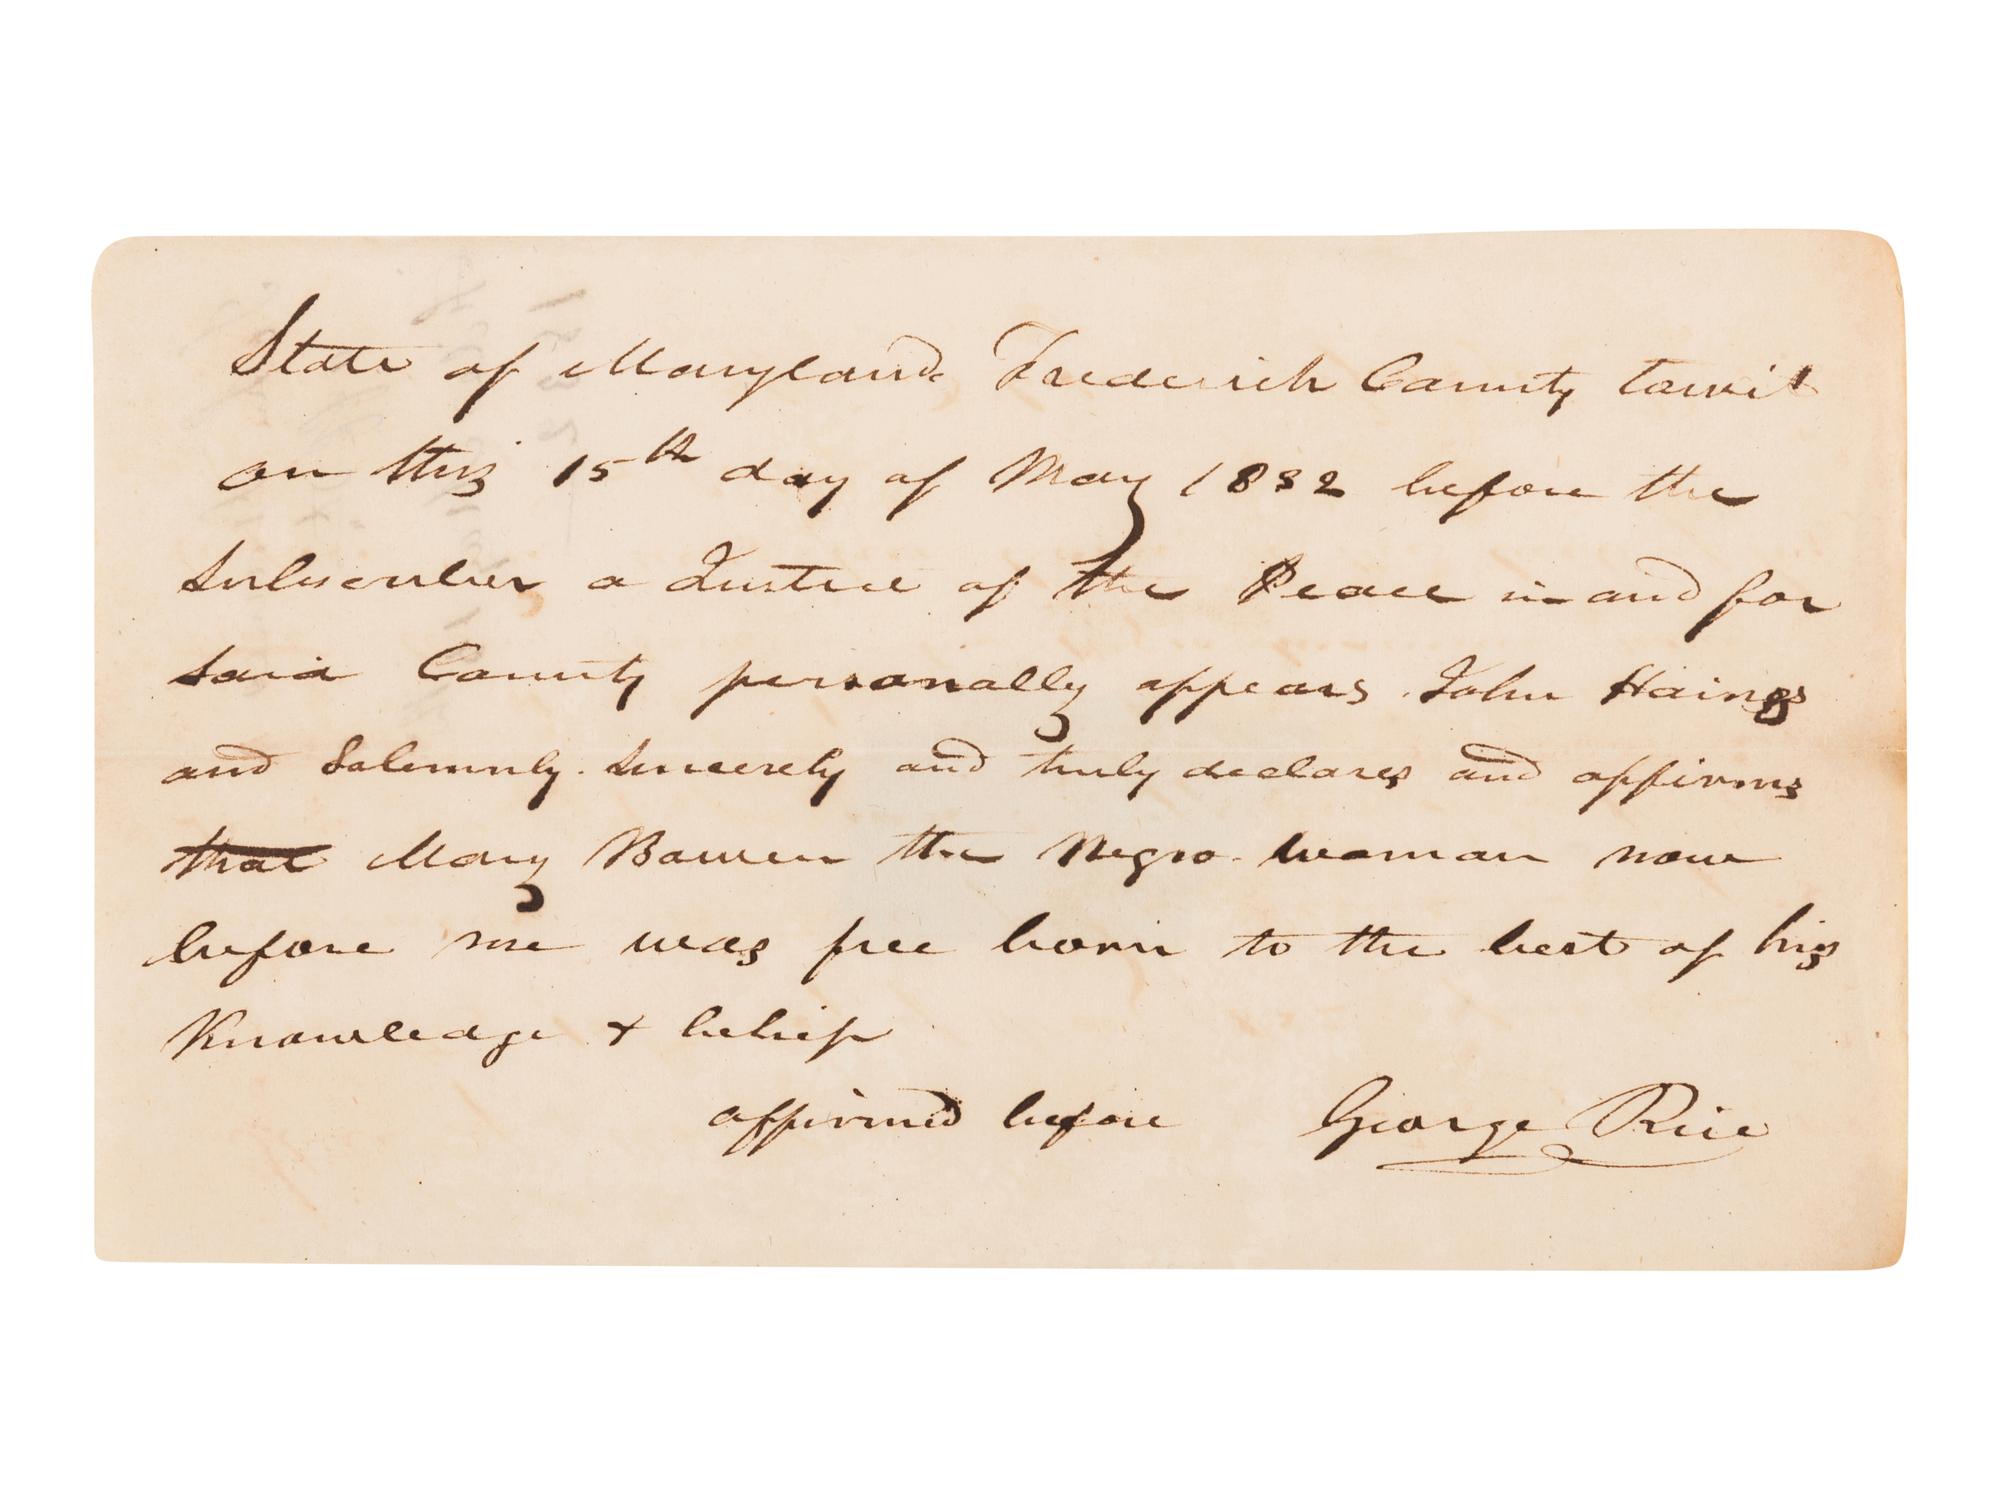 State of Maryland Frederick County towit
on this 15th day of May 1832 before the
Subscriber a Justice of the Peace in and for
Said County personally appears John Haings
and Solemnly Sincerely and truly declares and affirms
that Mary Bowen the Negro woman now
before me was free born to the best of his
Knowledge + belief
affirmed before George Rice